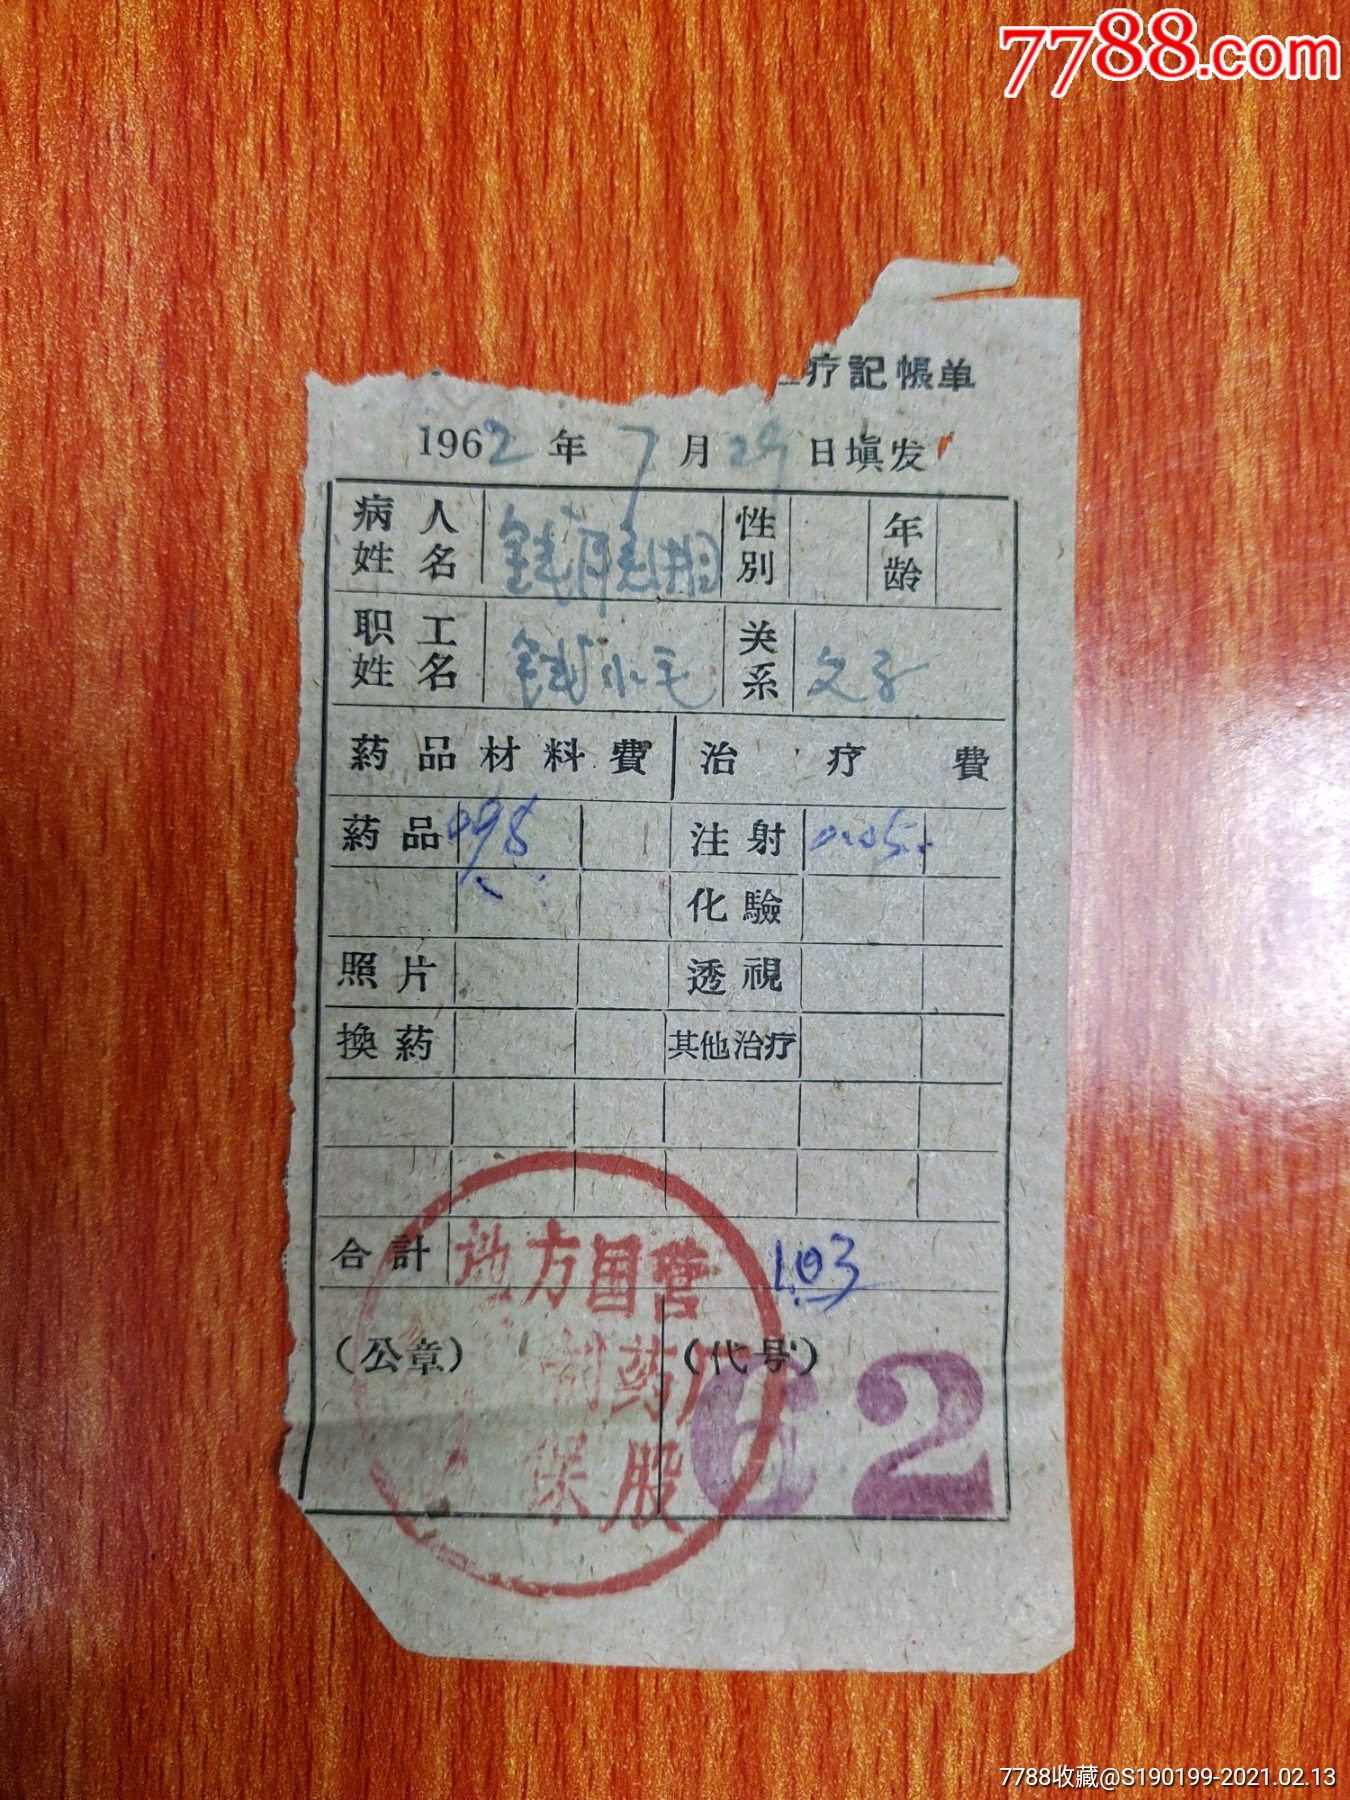 7788.com
疗記帳单
1962年7月29日填发
病人姓名 钱 性別 年龄
职工姓名 钱小毛 关系 父子
葯品材料費 治疗費
葯品 098 注射 0.05
化驗
照片 透視
換葯 其他治疗
合計 1.03
地方国营
制药厂
保股
(公章) (代号) 62
7788收藏@S190199-2021.02.13